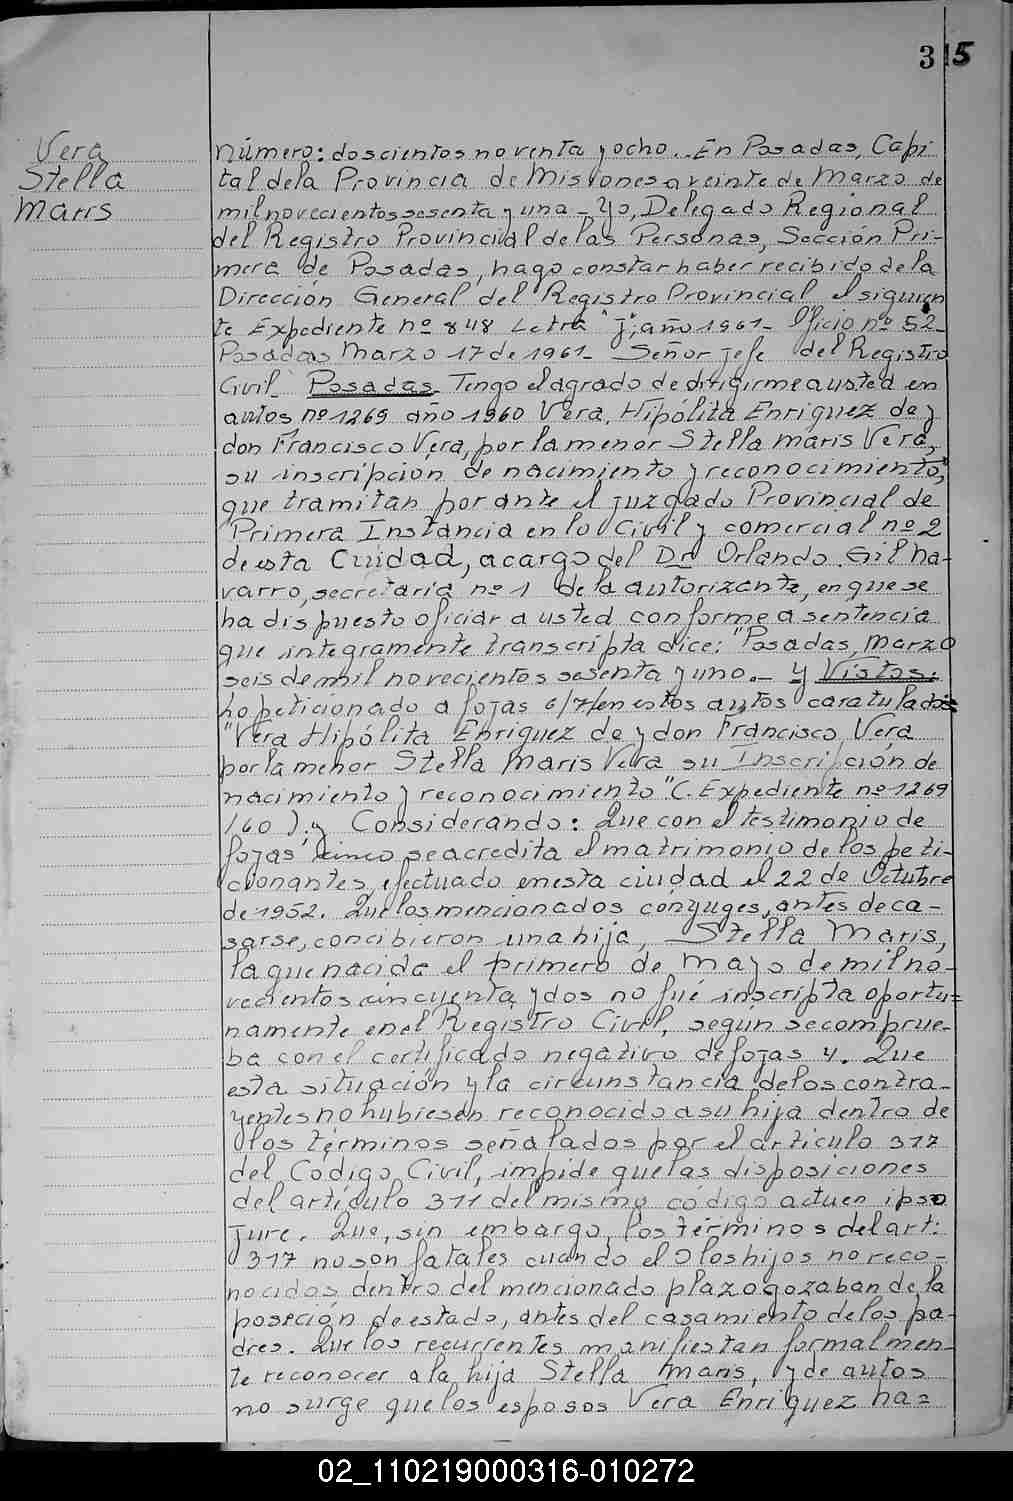 315
Vera
Stella
Maris
número: doscientos noventa y ocho. En Posadas, Capi
tal de la Provincia de Misiones a veinte de Marzo de
mil novecientos sesenta y una - Yo, Delegado Regional
del Registro Provincial de las Personas, Sección Pri-
mera de Posadas, hago constar haber recibido de la
Dirección General del Registro Provincial el siguien
te Expediente nº 848 Letra "J", año 1961- Oficio nº 52-
Posadas Marzo 17 de 1961- Señor Jefe del Registro
Civil Posadas Tengo el agrado de dirigirme a usted en
autos nº 1269 año 1960 Vera, Hipólita Enriquez de y
don Francisco Vera, por la menor Stella Maris Vera,
su inscripción de nacimiento y reconocimiento,
que tramitan por ante el juzgado Provincial de
Primera Instancia en lo Civil y comercial nº 2
de esta Ciudad, a cargo del Dr Orlando Gil Na-
varro, secretaria nº 1 de la autorizante, en que se
ha dispuesto oficiar a usted conforme a sentencia
que integramente transcripta dice: "Posadas, Marzo
seis de mil novecientos sesenta y uno.- Y Vistos:
lo peticionado a fojas 6/7/en estos autos caratulados
"Vera Hipólita Enriquez de y don Francisco Vera
por la menor Stella Maris Vera su Inscripción de
nacimiento y reconocimiento" (. Expediente nº 1269
/60 ) y Considerando: Que con el testimonio de
fojas cinco se acredita el matrimonio de los peti-
cionantes, efectuado en esta ciudad el 22 de Octubre
de 1952. Que los mencionados conyuges, antes de ca-
sarse, concibieron una hija, Stella Maris,
la que nacida el primero de Mayo de mil no-
vecientos cincuenta y dos no fué inscripta oportu=
namente en el Registro Civil, según se comprue-
ba con el certificado negativo de fojas 4. Que
esta situación y la circunstancia de los contra-
yentes no hubiesen reconocido a su hija dentro de
los términos señalados por el articulo 317
del Codigo Civil, impide que las disposiciones
del artículo 311 del mismo codigo actuen ipso
jure. Que, sin embargo, los términos del art:
317 no son fatales cuando el o los hijos no reco-
nocidos dentro del mencionado plazo gozaban de la
posición de estado, antes del casamiento de los pa-
dres. Que los recurrentes manifiestan formalmen-
te reconocer a la hija Stella Maris, y de autos
no surge que los esposos Vera Enriquez ha=
02_110219000316-010272